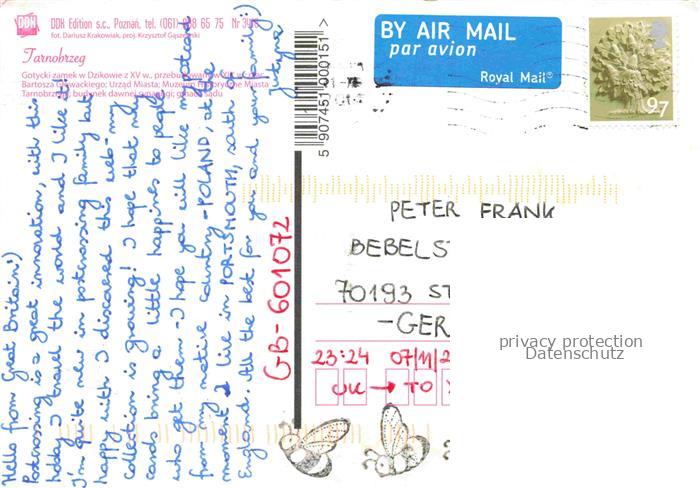 DDK Edition s.c., Poznań, tel. (061) 8 8 65 75 Nr 39
fot. Dariusz Krakowiak, proj. Krzysztof Gąszewski
Tarnobrzeg
Gotycki zamek w Dzikowie z XV w.,
Bartosza Głowackiego; Urząd Miasta; Muzeum Historyczne Miasta
Tarnobrzeg; budynek dawnej
5907451900151 >
BY AIR MAIL
par avion
Royal Mail®
97
Hello from Great Britain:)
Postcrossing is a great innovation, with this
hobby I travel the world and I like it!
I'm quite new in postcrossing family but
happy with I discovered this web- my
collection is growing! I hope that my
cards bring a little happines to people
who get them - I hope you will like my postcard
from my native country - POLAND, at the
moment I live in PORTSMOUTH, south of
England. All the best for you and your family:)
GB-601072
PETER FRANK
BEBELS
70193 ST
-GER
23:24 07/11/2
UK → TO
privacy protection
Datenschutz